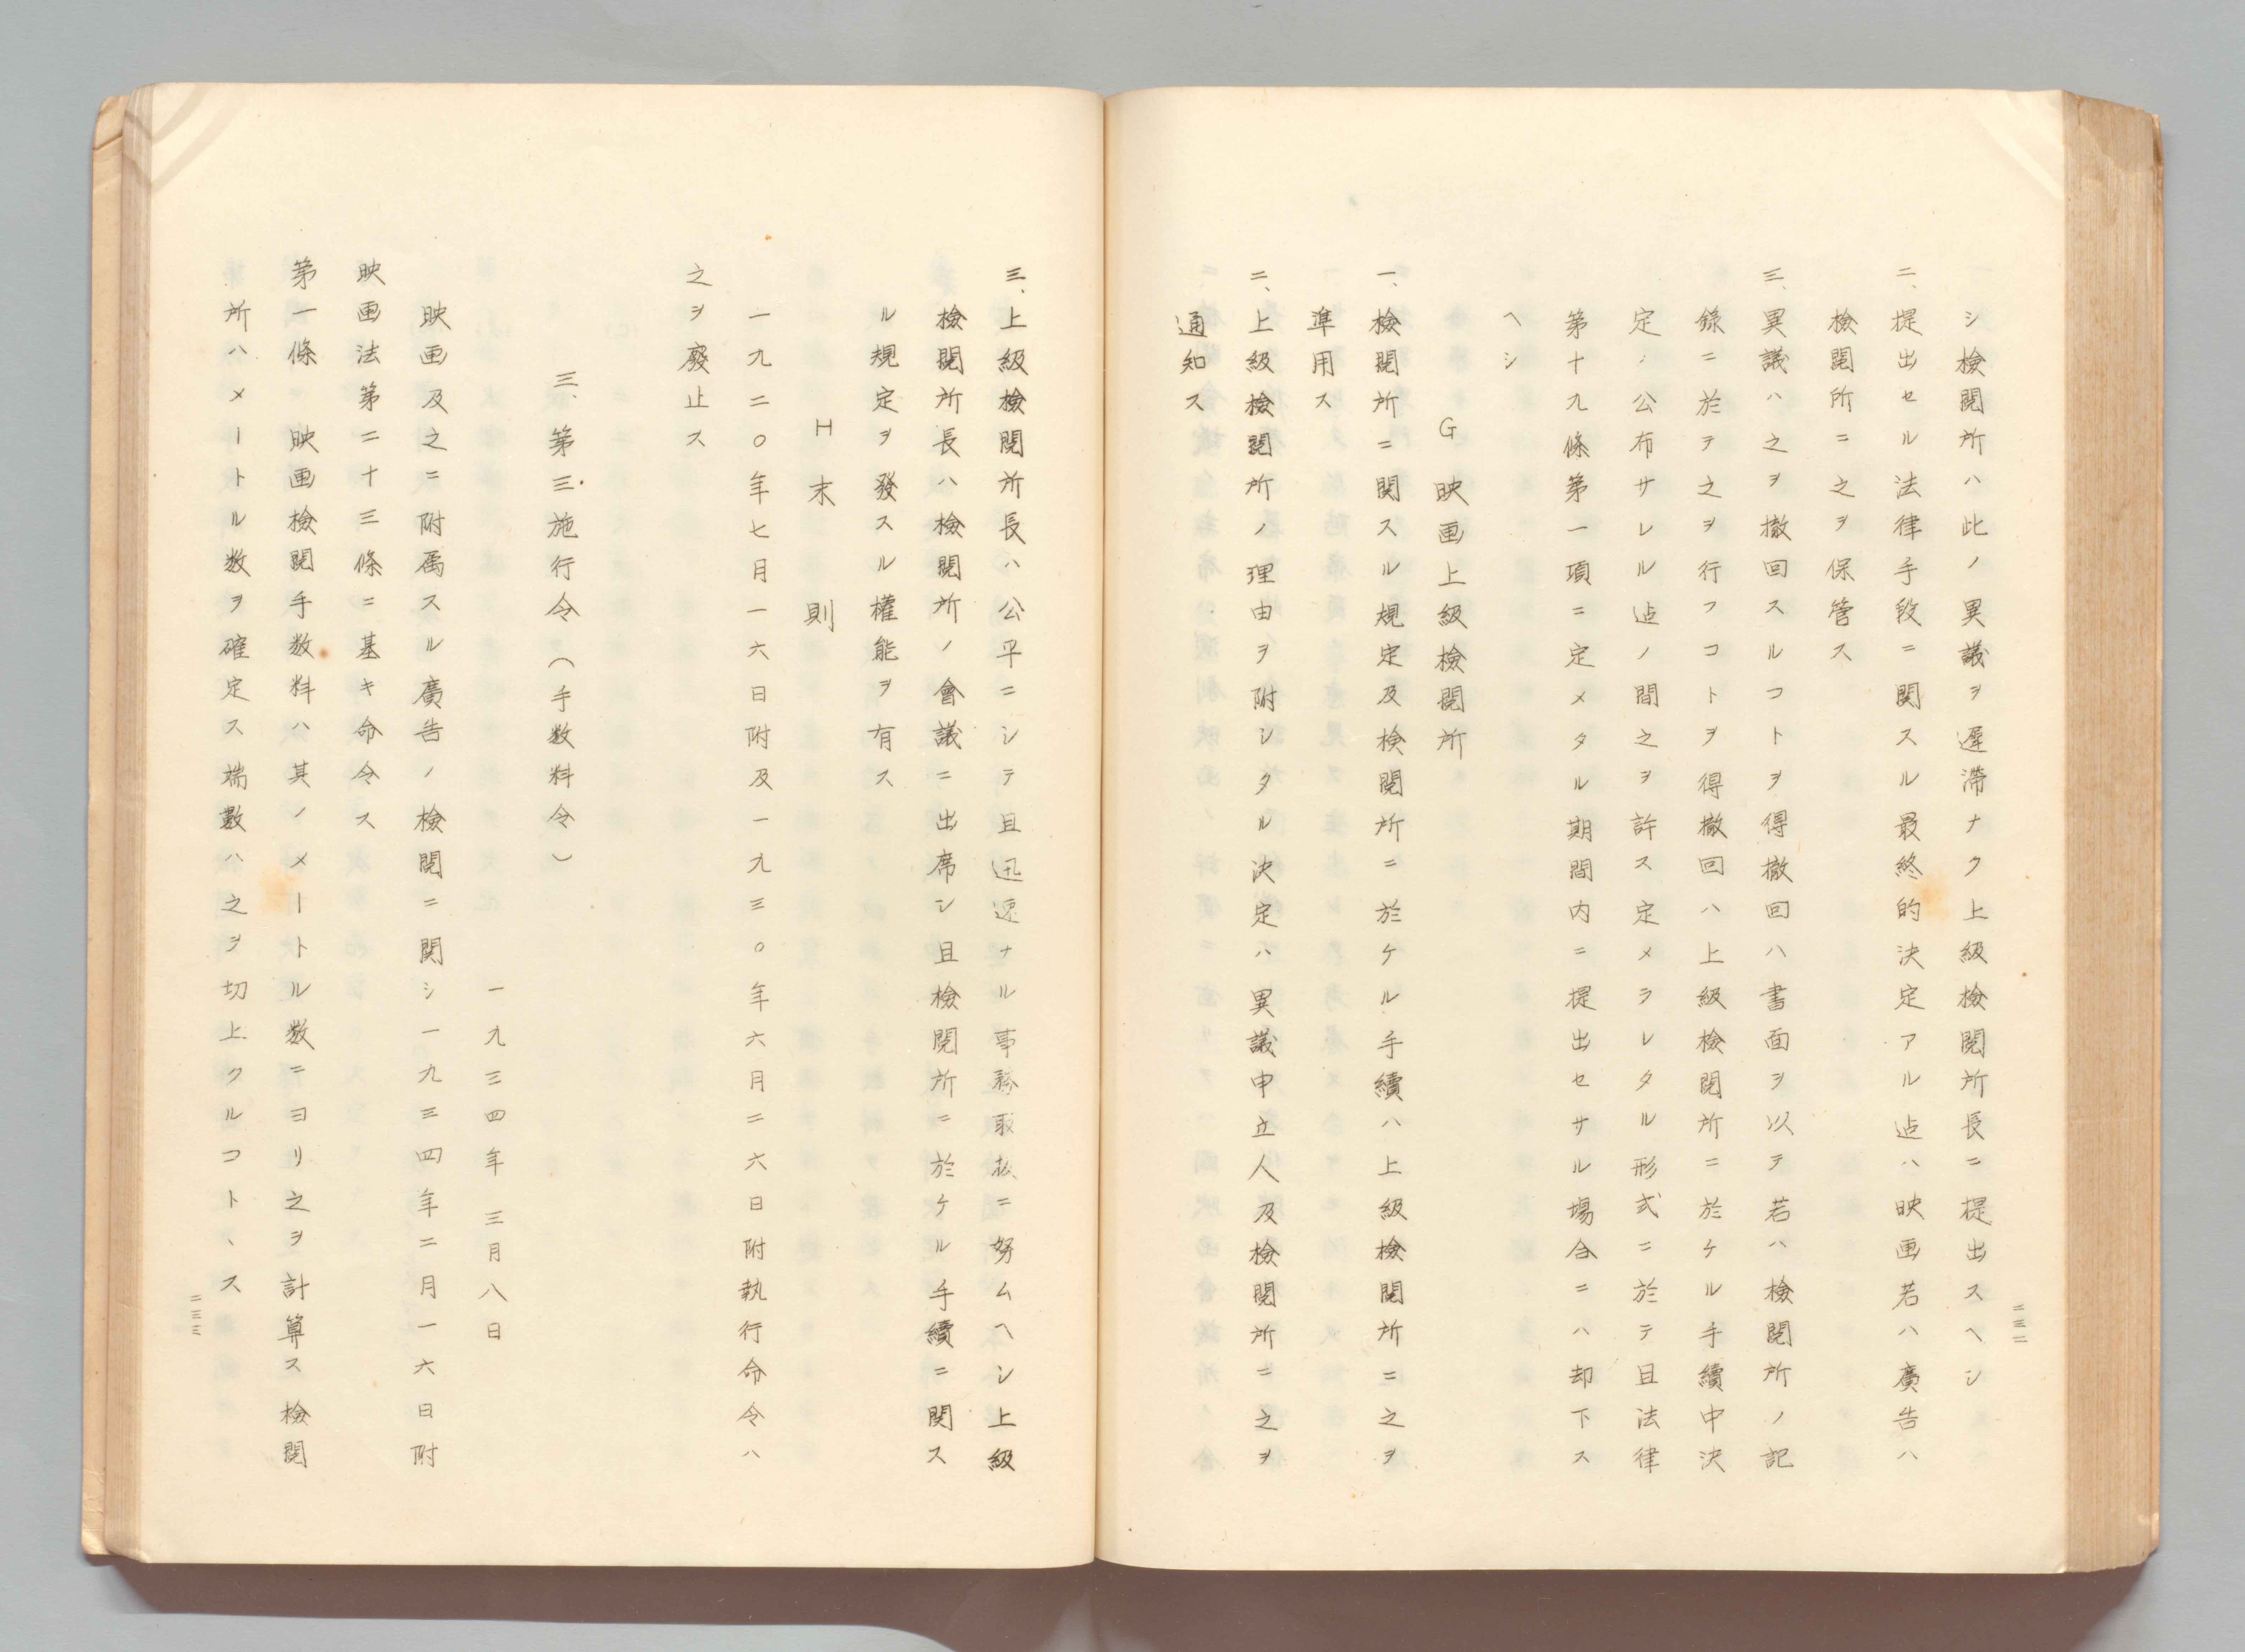 シ檢閲所ハ此ノ異議ヲ遲滯ナク上級檢閲所長ニ提出スヘシ
二、提出セル法律手段ニ関スル最終的決定アル迠ハ映画若ハ廣告ハ
檢閲所ニ之ヲ保管ス
三、異議ハ之ヲ撤回スルコトヲ得撤回ハ書面ヲ以テ若ハ檢閲所ノ記
錄ニ於テ之ヲ行フコトヲ得撤回ハ上級檢閲所ニ於ケル手續中決
定ノ公布サレル迠ノ間之ヲ許ス定メラレタル形式ニ於テ且法律
第十九條第一項ニ定メタル期間内ニ提出セサル場合ニハ却下ス
ヘシ
G 映画上級檢閲所
一、檢閲所ニ関スル規定及檢閲所ニ於ケル手續ハ上級檢閲所ニ之ヲ
準用ス
二、上級檢閲所ノ理由ヲ附シタル決定ハ異議申立人及檢閲所ニ之ヲ
通知ス
二三二
三、上級檢閲所長ハ公平ニシテ且迅速ナル事務取扱ニ努ムヘシ上級
檢閲所長ハ檢閲所ノ會議ニ出席シ且檢閲所ニ於ケル手續ニ関ス
ル規定ヲ發スル權能ヲ有ス
H 末則
一九二〇年七月一六日附及一九三〇年六月二六日附執行命令ハ
之ヲ廢止ス
三、第三施行令（手数料令）
一九三四年三月八日
映画及之ニ附属スル廣告ノ檢閲ニ関シ一九三四年二月一六日附
映画法第二十三條ニ基キ命令ス
第一條 映画檢閲手数料ハ其ノメートル数ニヨリ之ヲ計算ス檢閲
所ハメートル数ヲ確定ス端數ハ之ヲ切上クルコトヽス
二三三